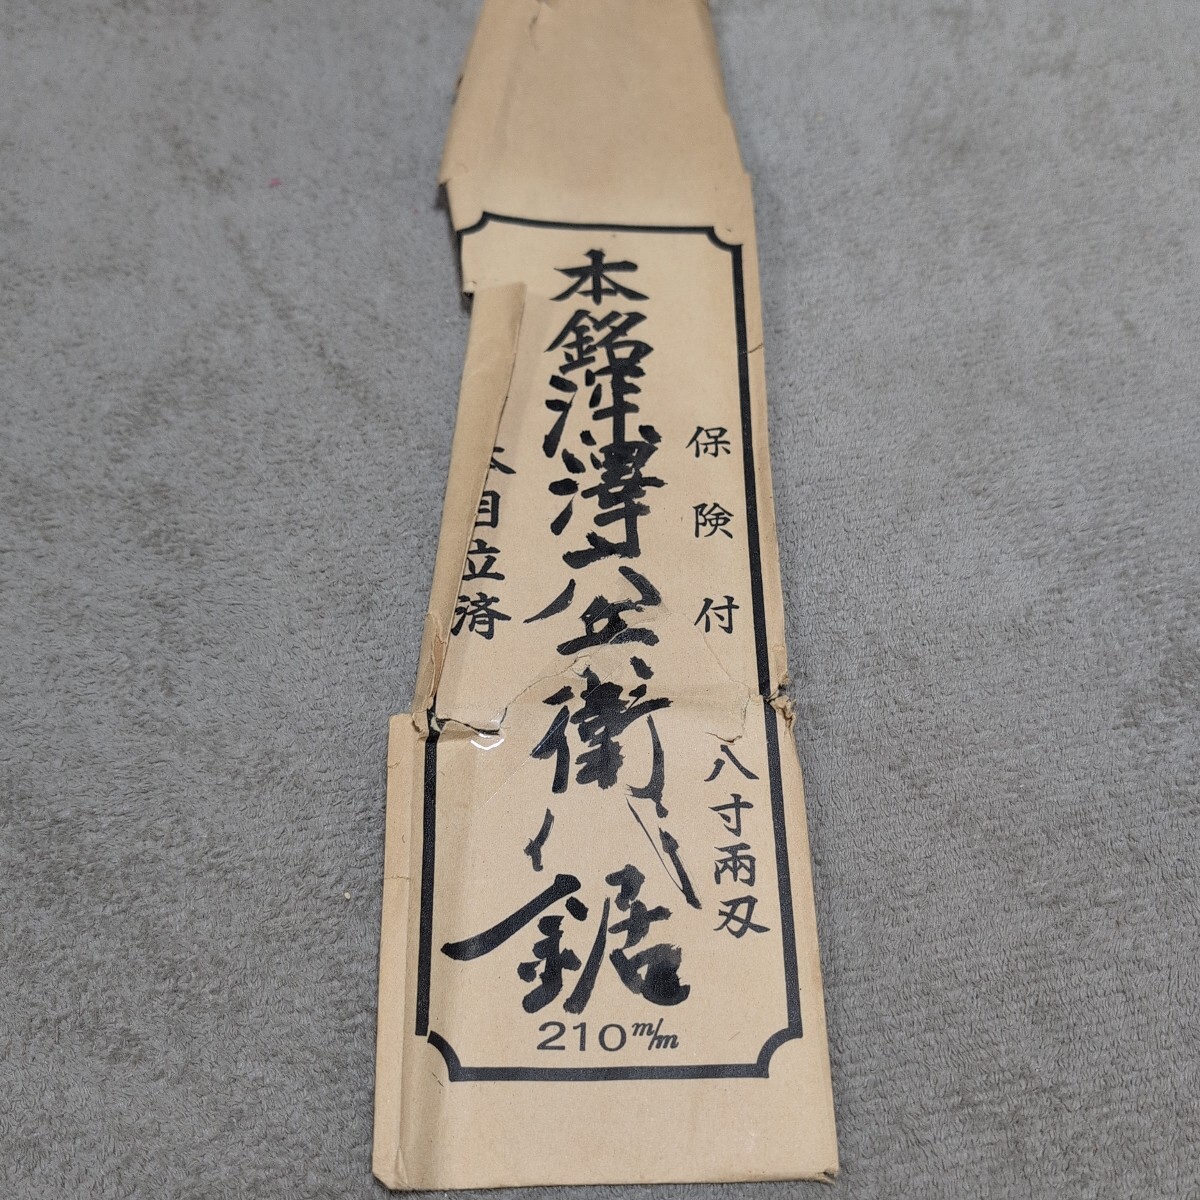 保険付
八寸両刃
本銘深澤六兵衛ノ鋸
本目立済
210m/m